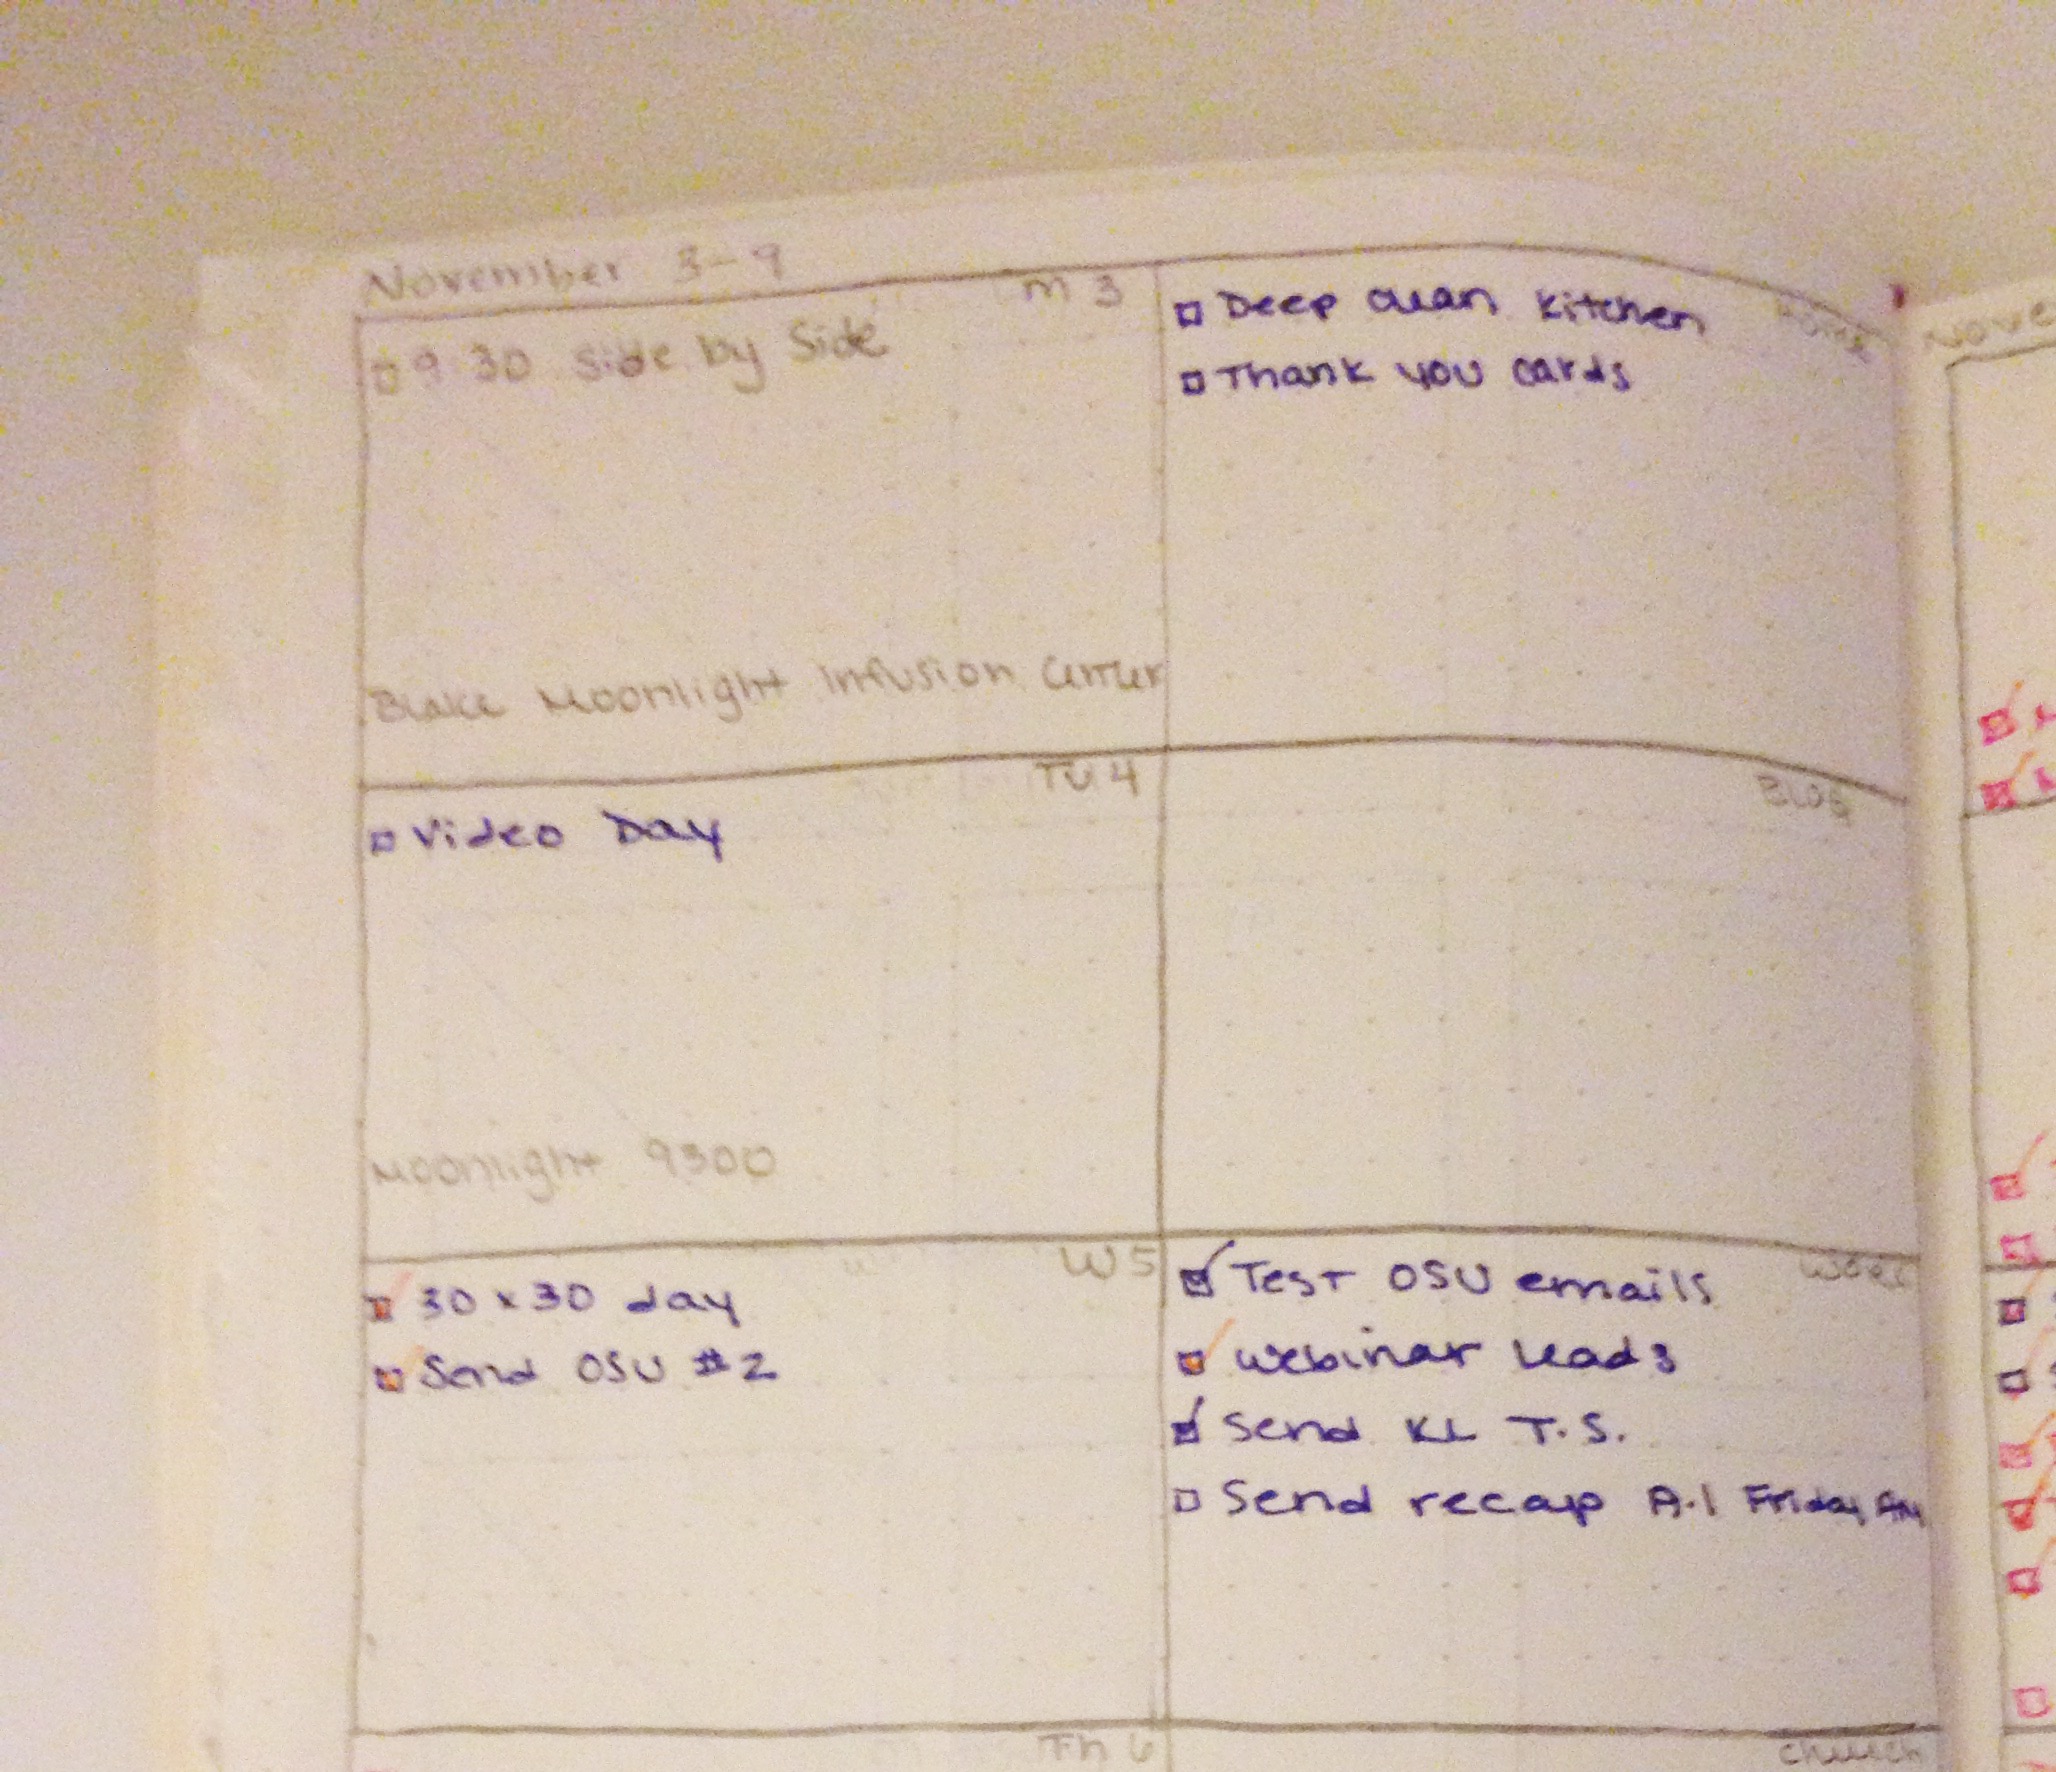 November 3-9
M 3
9:30 Side by Side
Blake Moonlight Infusion Center
Home
Deep clean kitchen
Thank you cards
TU 4
Video Day
Moonlight 9300
Blog
W 5
30 x 30 day
Send OSU #2
Work
Test OSU emails
Webinar leads
Send KL T.S.
Send recap A.I Friday AM
Th 6
church
Nove